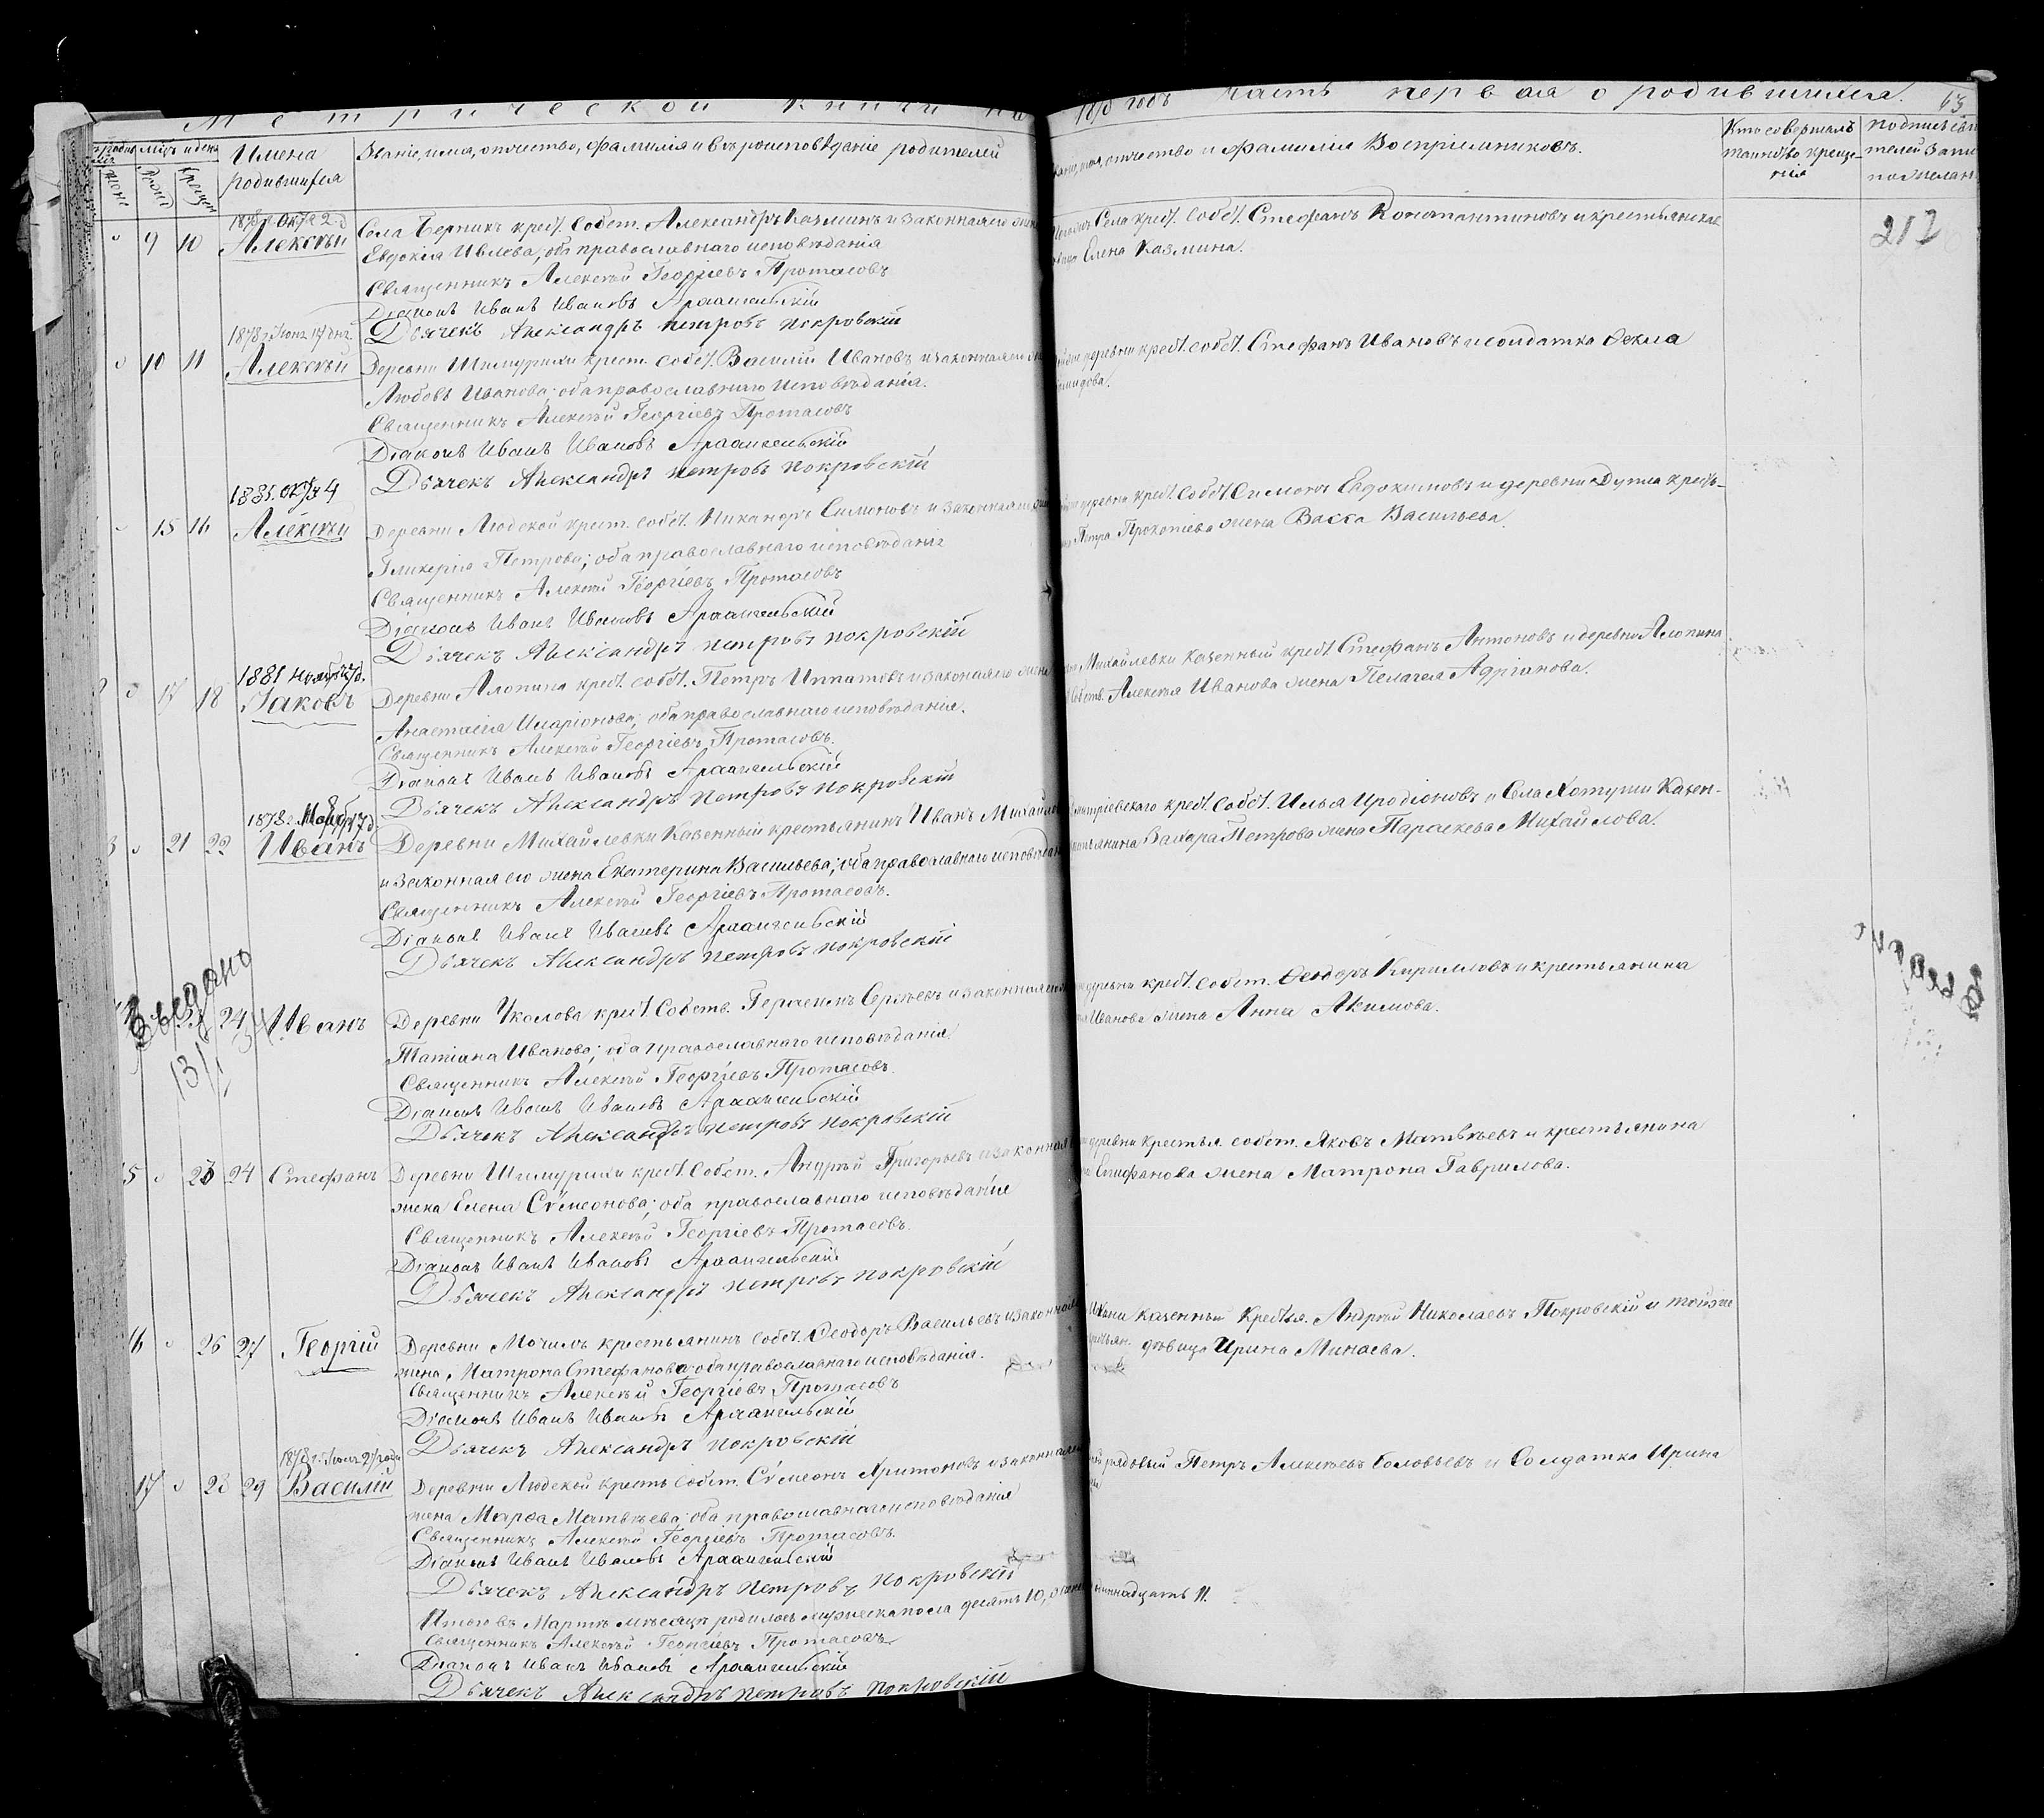 Метрической книги на 18 0 годъ часть первая о родившихся. 63
Имена родившихся
Званіе, имя, отчество, фамилія и вѣроисповѣданіе родителей
отчество и фамилія Воспріемниковъ.
Кто совершалъ таинство крещенія
Окт 2
9 10 Алексѣй
Села крест. собст. Александръ Казминъ и законная его
Евдокія Ивлева; оба православнаго исповѣданія
Священникъ Алексѣй Георгіевъ Протасовъ
Діаконъ Иванъ Ивановъ Архангельскій
Дьячекъ Александръ Петровъ Покровскій
Села крест. собст. Стефанъ Константиновъ и крестьянская
Елена Казмина.
217
1878
10 11 Алексѣй
Деревни Шимурихи крест. собст. Василій Ивановъ и законная его
Любовь Иванова; оба православнаго исповѣданія.
Священникъ Алексѣй Георгіевъ Протасовъ
Діаконъ Иванъ Ивановъ Архангельскій
Дьячекъ Александръ Петровъ Покровскій
деревни крест. собст. Стефанъ Ивановъ и солдатка Ѳекла
1881. Окт 4
15 16 Алексѣй
Деревни Людской крест. собст. Никандръ Симоновъ и законная
Гликерія Петрова; оба православнаго исповѣданія
Священникъ Алексѣй Георгіевъ Протасовъ
Діаконъ Иванъ Ивановъ Архангельскій
Дьячекъ Александръ Петровъ Покровскій
деревни крест. собст. Симонъ Евдокимовъ и деревни кресть-
Петра Прокопіева жена Васса Васильева.
1881
17 18 Іаковъ
Деревни Алопина крест. собст. Петръ Ипатовъ и законная его жена
Анастасія Иларіонова; оба православнаго исповѣданія.
Священникъ Алексѣй Георгіевъ Протасовъ.
Діаконъ Иванъ Ивановъ Архангельскій
Дьячекъ Александръ Петровъ Покровскій
Михайлевки казенный крест. Стефанъ Антоновъ и деревни Алопина
Собств. Алексѣя Иванова жена Пелагея Адріанова.
1878
21 22 Иванъ
Деревни Михайлевки Казенный крестьянинъ Иванъ
и законная его жена Екатерина Васильева; оба православнаго
Священникъ Алексѣй Георгіевъ Протасовъ.
Діаконъ Иванъ Ивановъ Архангельскій
Дьячекъ Александръ Петровъ Покровскій
крест. собст. Илья Иродіоновъ и Села Хотуши Казен-
Захара Петрова жена Параскева Михайлова.
24 Иванъ
Деревни Уколова крест. Собств. Герасимъ Сергѣевъ и законная
Татіана Иванова; оба православнаго исповѣданія.
Священникъ Алексѣй Георгіевъ Протасовъ.
Діаконъ Иванъ Ивановъ Архангельскій
Дьячекъ Александръ Петровъ Покровскій
деревни крест. собст. Ѳеодоръ Кирилловъ и крестьянина
Иванова жена Анна Акимова.
Введано
13/I
5 23 24 Стефанъ
Деревни Шимурихи крест. собст. Андрей Григорьевъ и законная
жена Елена Сѵмеонова; оба православнаго исповѣданія
Священникъ Алексѣй Георгіевъ Протасовъ.
Діаконъ Иванъ Ивановъ Архангельскій
Дьячекъ Александръ Петровъ Покровскій
деревни крестья. собст. Яковъ Матвѣевъ и крестьянина
Епифанова жена Матрона Гаврилова.
16 26 27 Георгій
Деревни Мочилъ крестьянинъ собст. Ѳеодоръ Васильевъ и законная
жена, Матрона Стефанова оба православнаго исповѣданія.
Священникъ Алексѣй Георгіевъ Протасовъ
Діаконъ Иванъ Ивановъ Архангельскій
Дьячекъ Александръ Покровскій
казенный крестья. Андрей Николаевъ Покровскій и тойже
дѣвица Ирина Минаева.
17 28 29 Василій
Деревни Людской кресть. собст. Сѵмеонъ Харитоновъ и законная
жена Марѳа Матвѣева; оба православнаго исповѣданія
Священникъ Алексѣй Георгіевъ Протасовъ.
Діаконъ Иванъ Ивановъ Архангельскій
Дьячекъ Александръ Петровъ Покровскій
рядовый Петръ Алексѣевъ Соловьевъ и Солдатка Ирина
Итого въ Мартѣ мѣсяцѣ родилось мужеска пола десять 10, 11.
Священникъ Алексѣй Георгіевъ Протасовъ
Діаконъ Иванъ Ивановъ Архангельскій
Дьячекъ Александръ Петровъ Покровскій